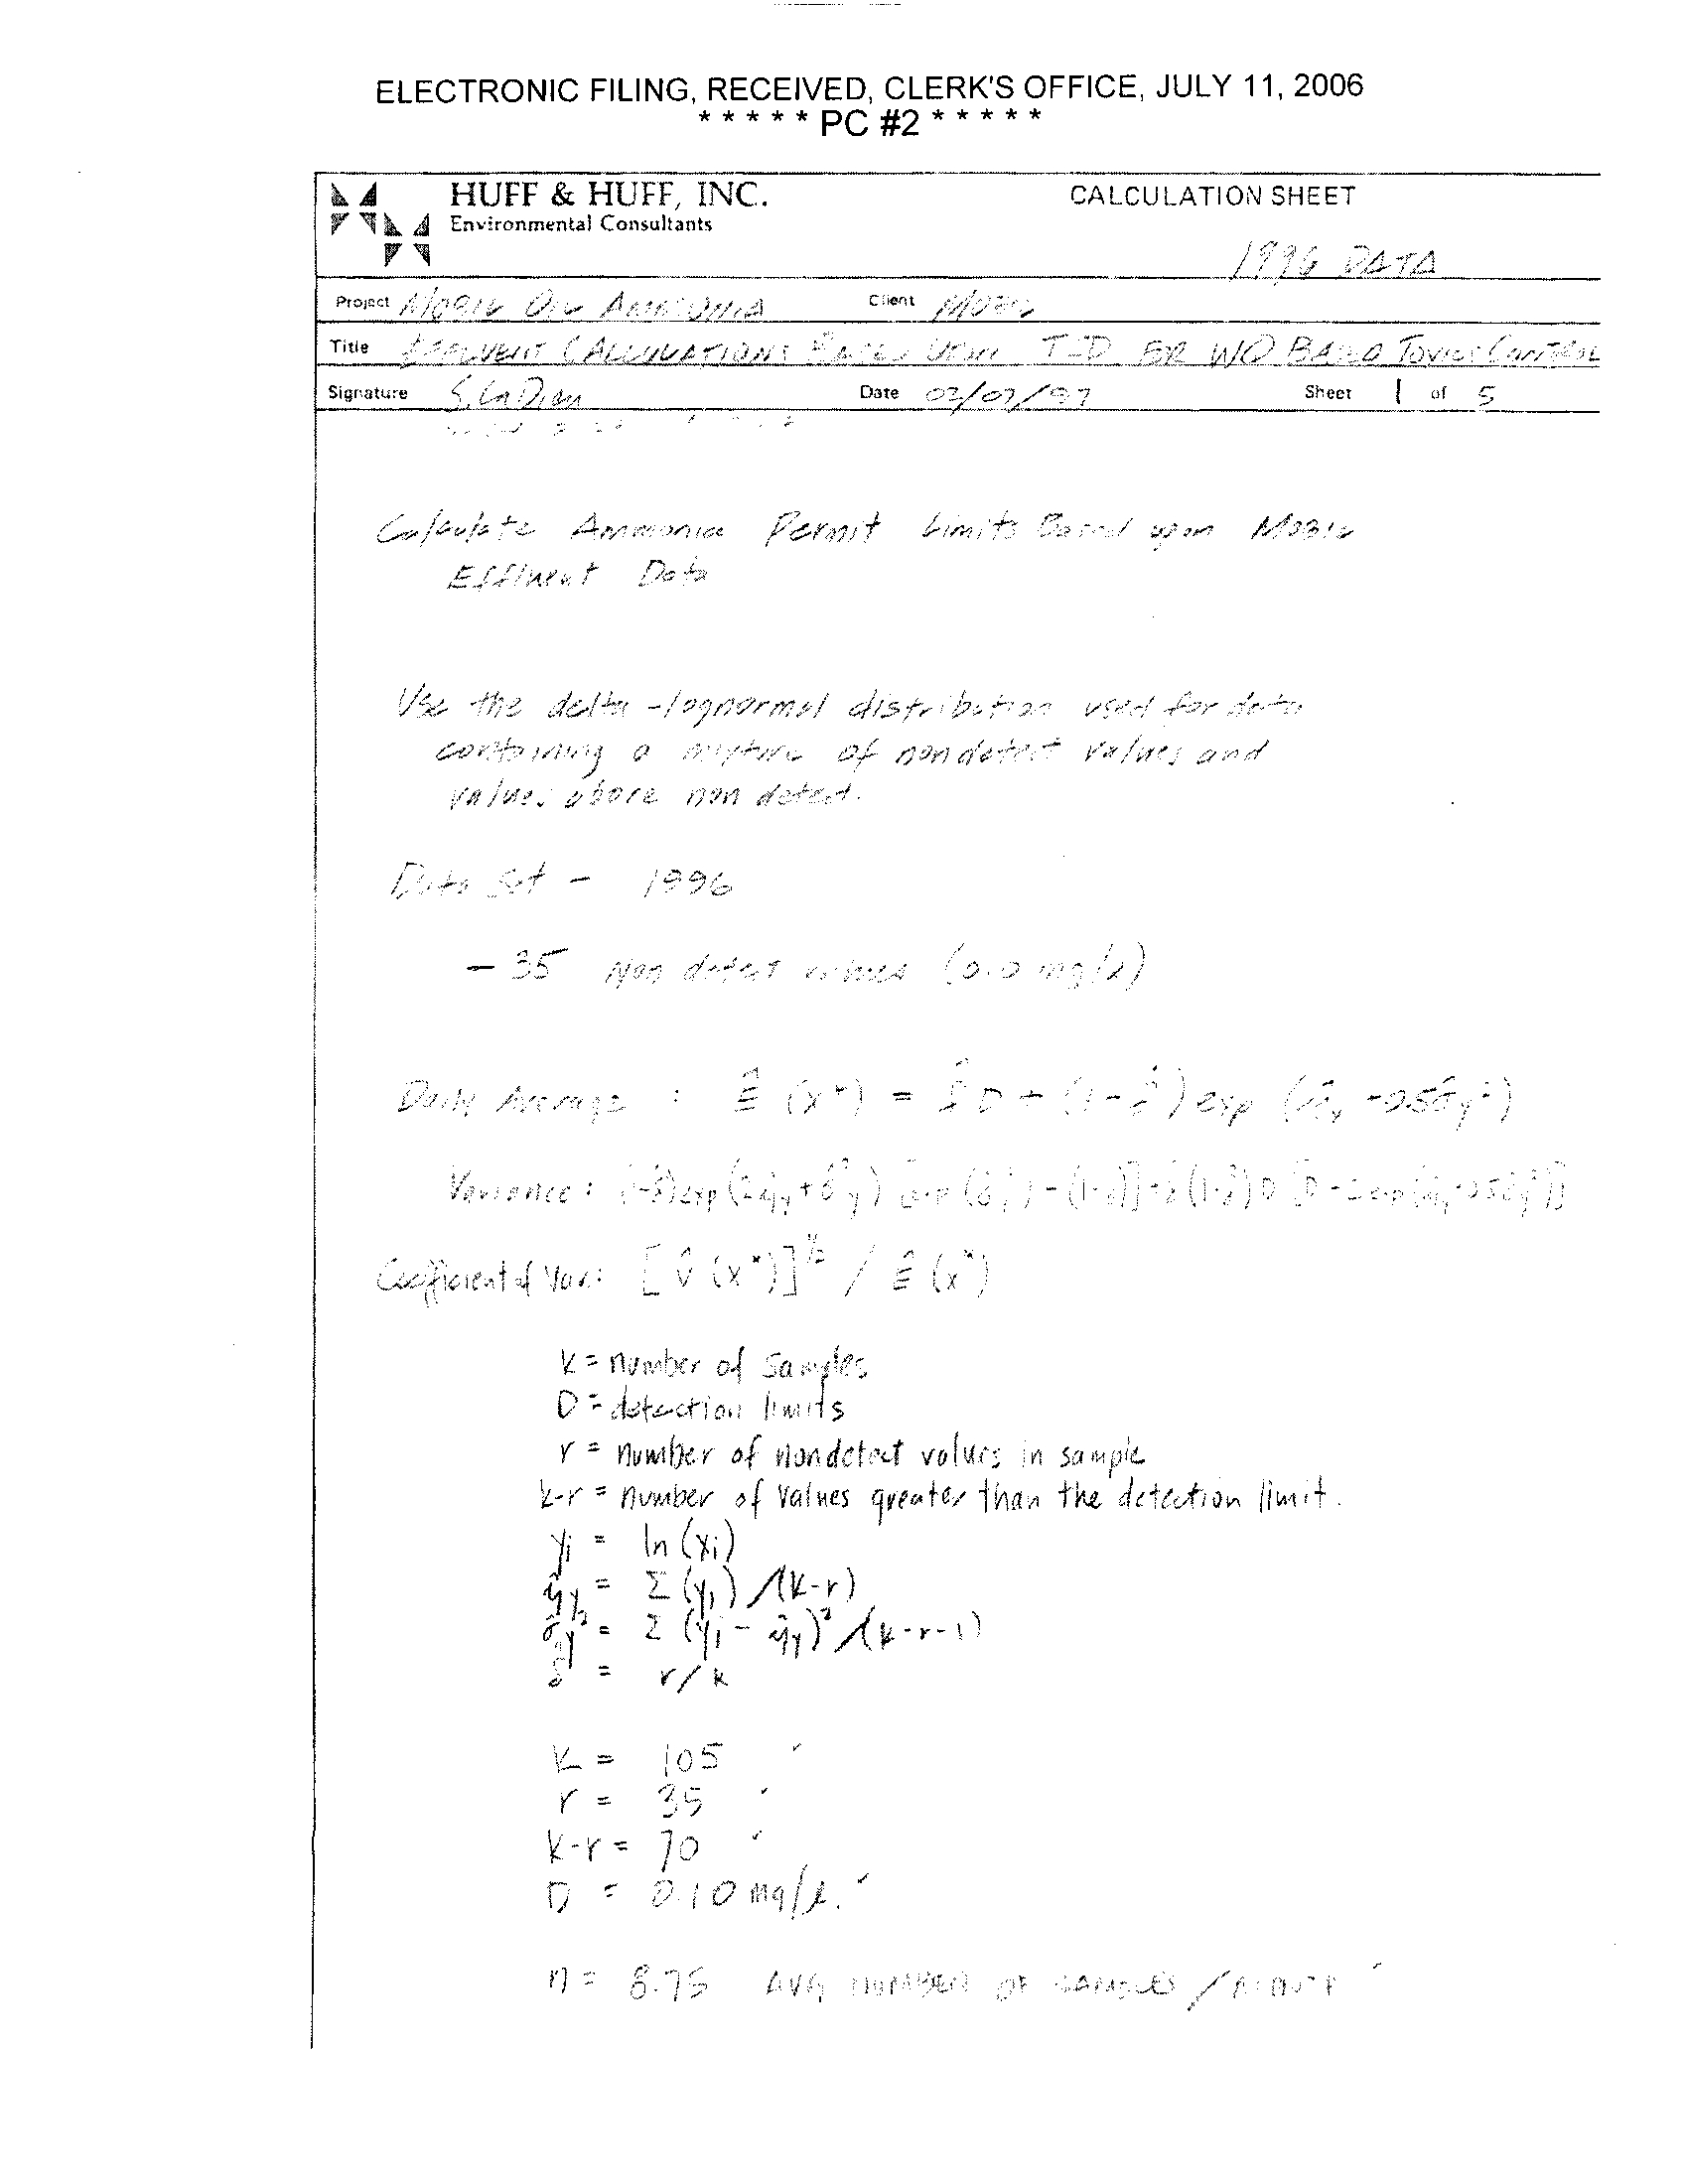 ELECTRONIC FILING, RECEIVED, CLERK'S OFFICE, JULY 11, 2006
* * * * * PC #2 * * * * *
HUFF & HUFF, INC.
CALCULATION SHEET
Environmental Consultants
1996 DATA
Project MOBIL OIL AMMONIA Client MOBIL
Title EFFLUENT CALCULATIONS BASED UPON T-D FOR WQ BASED TOXICS CONTROL
Signature Date 03/07/97 Sheet 1 of 5
Calculate Ammonia Permit Limits Based upon MOBIL
Effluent Data
Use the delta-lognormal distribution used for data
containing a mixture of nondetect values and
values above non detect.
Data Set - 1996
- 35 Non detect values (0.0 mg/l)
Daily Average : Ê (x*) = δ̂ D + (1-δ̂) exp (μ̂y +0.5σ̂y²)
Variance: (1-δ̂) exp (2μ̂y + σ̂²y) [exp (σ̂²y) - (1-δ̂)] + δ̂ (1-δ̂) D [D - 2 exp (μ̂y + 0.5σ̂y²)]
Coefficient of Var: [V̂ (x*)]^½ / Ê (x*)
k = number of samples
D = detection limits
r = number of nondetect values in sample
k-r = number of values greater than the detection limit.
yi = ln (xi)
μ̂y = Σ (yi) / (k-r)
σ̂y² = Σ (yi - μ̂y)² / (k-r-1)
δ̂ = r/k
k = 105
r = 35
k-r = 70
D = 0.10 mg/l.
n = 8.75 AVG NUMBER OF SAMPLES / MONTH